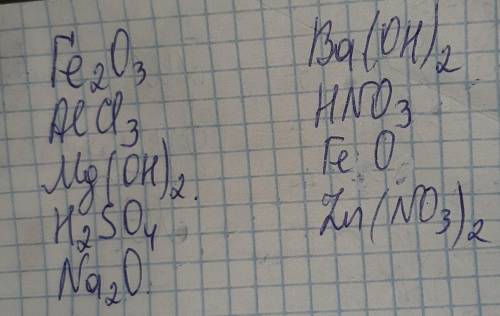 Fe₂O₃
AlCl₃
Mg(OH)₂.
H₂SO₄
Na₂O.
Ba(OH)₂
HNO₃
FeO
Zn(NO₃)₂